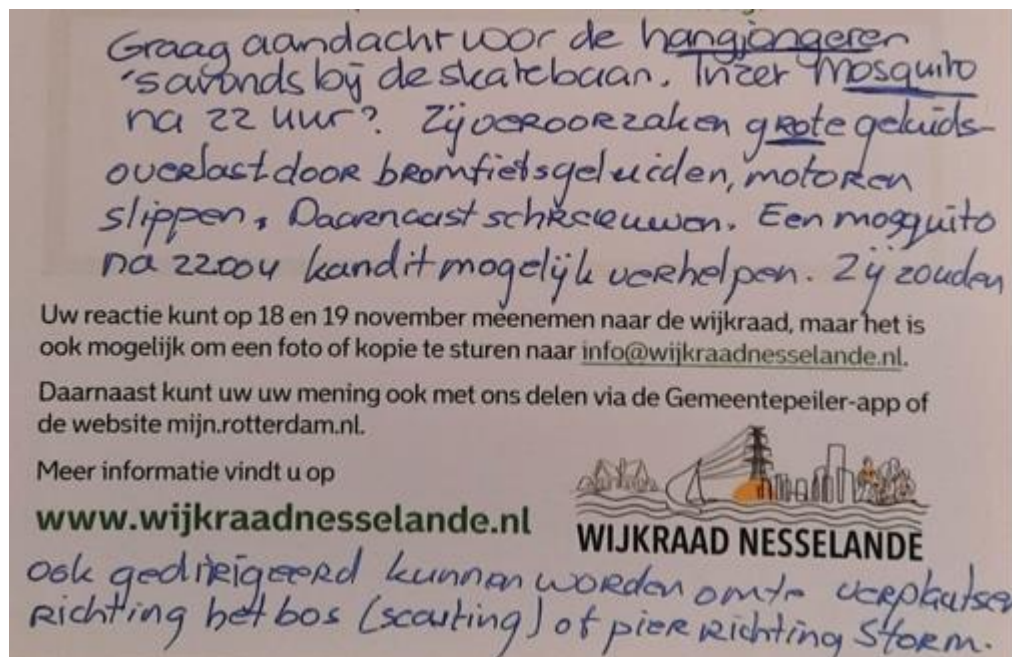 Graag aandacht voor de hangjongeren
'savonds bij de skatebaan. Inzet Mosquito
na 22 uur? Zij veroorzaken grote geluids-
overlast door bromfietsgeluiden, motoren
slippen. Daarnaast schreeuwen. Een mosquito
na 22004 kan dit mogelijk verhelpen. Zij zouden
Uw reactie kunt op 18 en 19 november meenemen naar de wijkraad, maar het is
ook mogelijk om een foto of kopie te sturen naar info@wijkraadnesselande.nl.
Daarnaast kunt uw uw mening ook met ons delen via de Gemeentepeiler-app of
de website mijn.rotterdam.nl.
Meer informatie vindt u op
www.wijkraadnesselande.nl
WIJKRAAD NESSELANDE
ook gedirigeerd kunnen worden om te verplaatsen
richting het bos (scouting) of pier richting Storm.